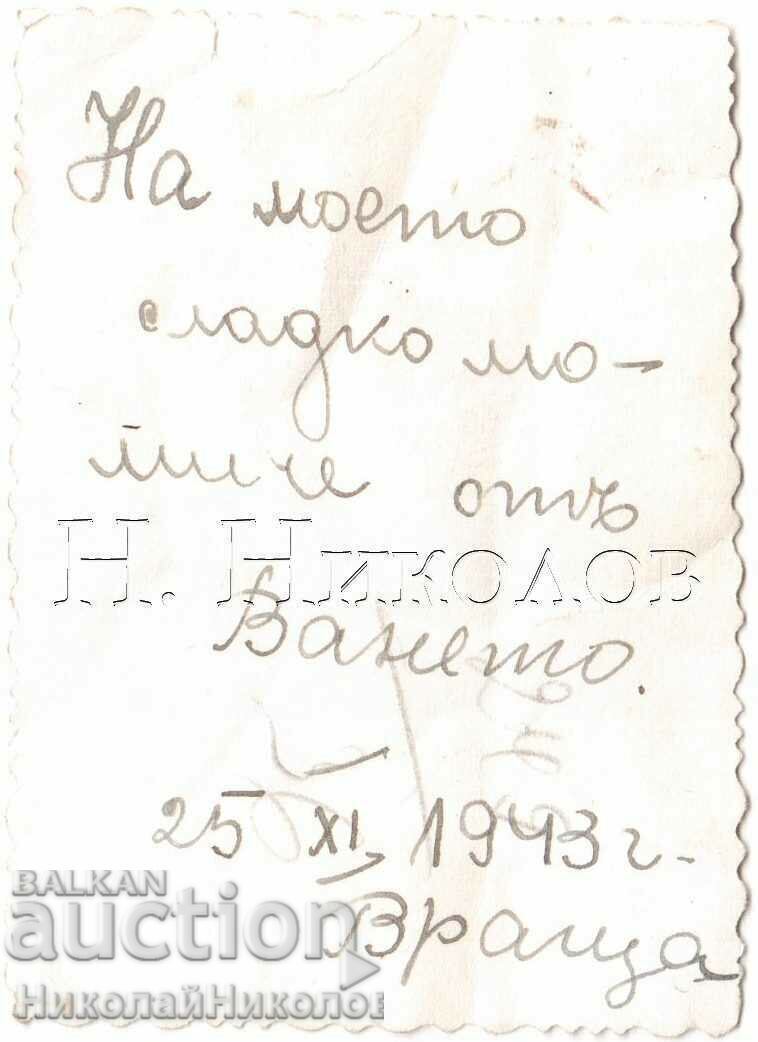 На моето
сладко мо-
миче отъ
Н. Николов
Ването.
25 XI, 1943 г.
BALKAN
auction
Враца
НиколайНиколов